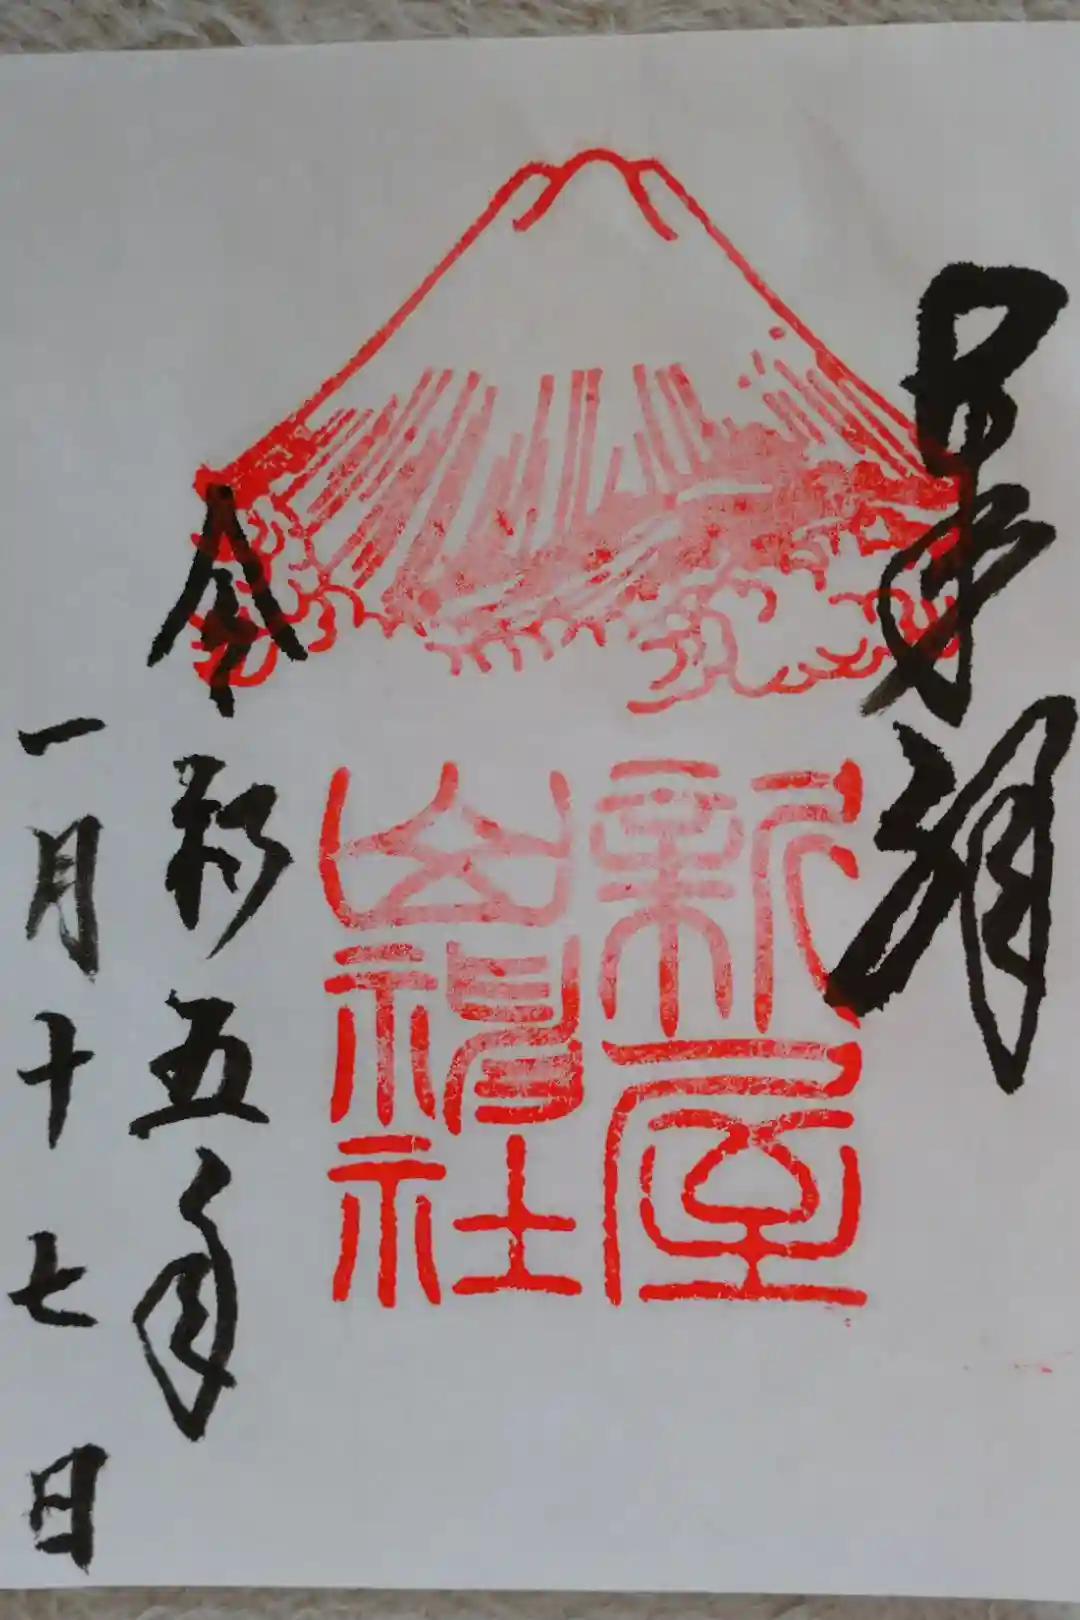 新屋
山神社
令和五年
一月十七日